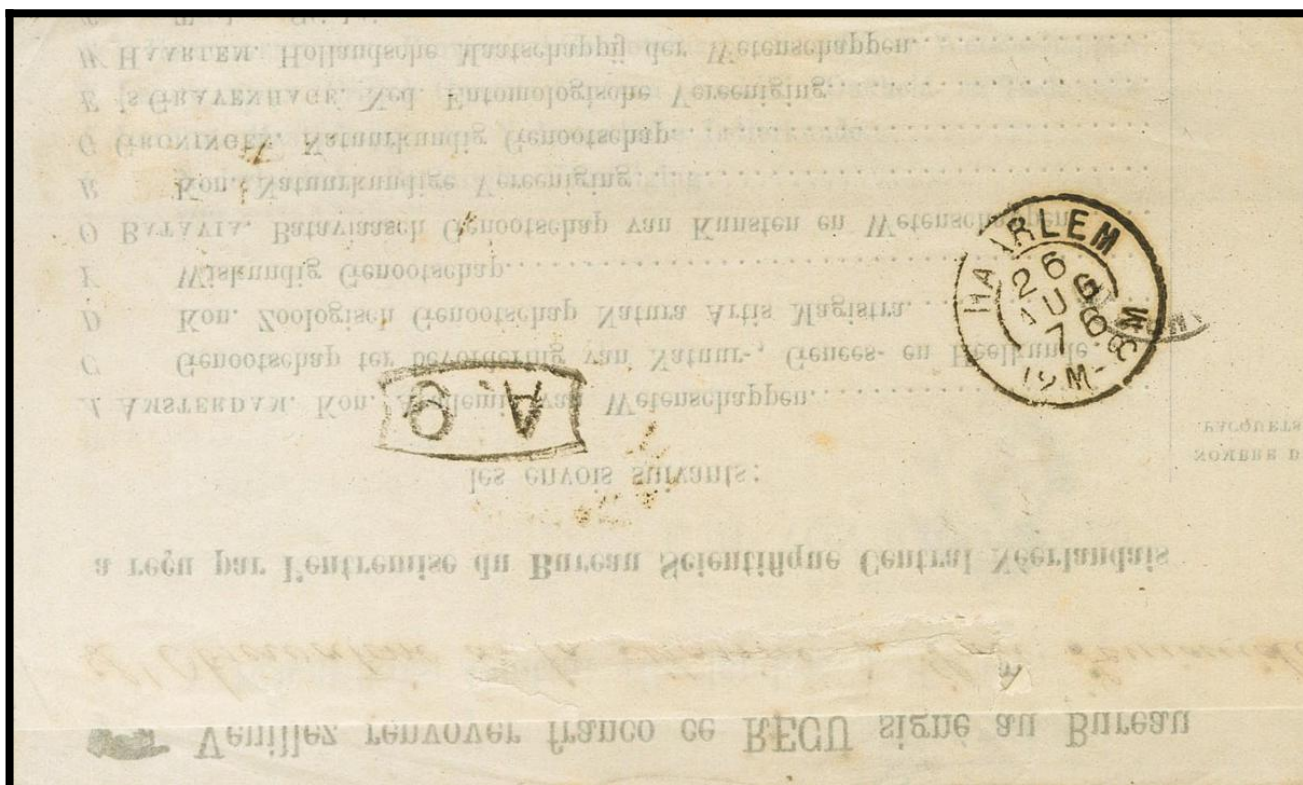 Veuillez renvoyer franco ce REÇU signé au Bureau
L'Observatoire de la
a reçu par l'entremise du Bureau Scientifique Central Néerlandais
les envois suivants:
NOMBRE D
PACQUETS
A AMSTERDAM. Kon. Akademie van Wetenschappen
C Genootschap ter bevordering van Natuur-, Genees- en Heelkunde
D Kon. Zoologisch Genootschap Natura Artis Magistra
Wiskundig Genootschap
O BATAVIA. Bataviaasch Genootschap van Kunsten en Wetenschappen
R Kon. Natuurkundige Vereeniging
G GRONINGEN. Natuurkundig Genootschap
E 's GRAVENHAGE. Ned. Entomologische Vereeniging
HAARLEM. Hollandsche Maatschappij der Wetenschappen
HAARLEM
26
AUG
76
12M-8M
A.